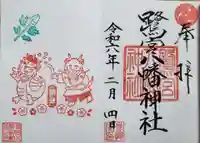 奉拝
鷺宮八幡神社
令和六年二月四日